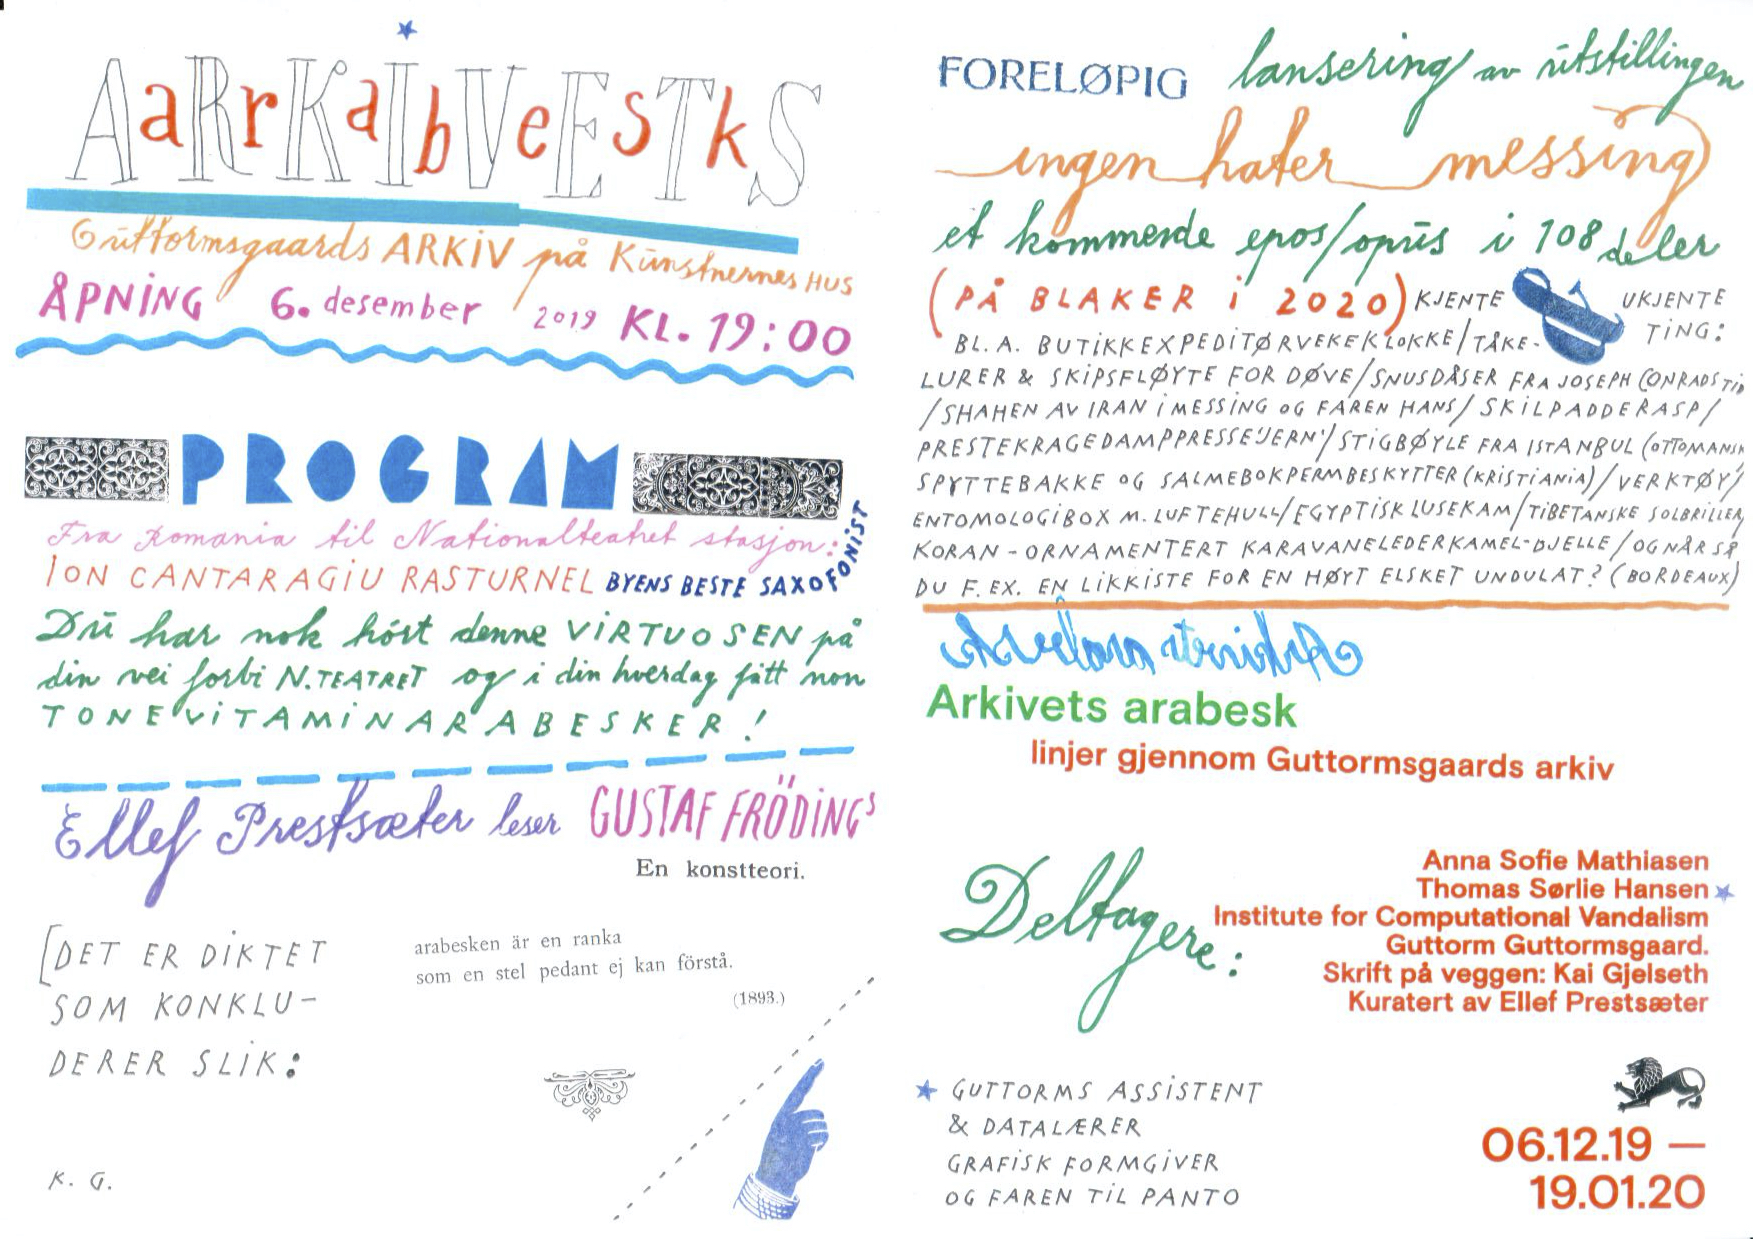 AaRrKaIbVeEsTkS
Guttormsgaards ARKIV på Kunstnernes HUS
ÅPNING 6. desember 2019 KL. 19:00
PROGRAM
Fra Romania til Nationalteatret stasjon:
ION CANTARAGIU RASTURNEL BYENS BESTE SAXOFONIST
Du har nok hört denne VIRTUOSEN på
din vei forbi N.TEATRET og i din hverdag fått non
TONEVITAMINARABESKER!
Ellef Prestsæter leser GUSTAF FRÖDINGS
En konstteori.
[DET ER DIKTET
SOM KONKLU-
DERER SLIK:
arabesken är en ranka
som en stel pedant ej kan förstå.
(1893.)
K. G.
FORELØPIG lansering av utstillingen
ingen hater messing
et kommende epos/opus i 108 deler
(PÅ BLAKER i 2020) KJENTE & UKJENTE
TING:
BL. A. BUTIKKEXPEDITØRVEKEKLOKKE/TÅKE-
LURER & SKIPSFLØYTE FOR DØVE/SNUSDÅSER FRA JOSEPH CONRADS TID
/SHAHEN AV IRAN I MESSING OG FAREN HANS/ SKILPADDERASP/
PRESTEKRAGEDAMPPRESSE'JERN'/STIGBØYLE FRA ISTANBUL (OTTOMANSK
SPYTTEBAKKE OG SALMEBOKPERMBESKYTTER (KRISTIANIA)/VERKTØY/
ENTOMOLOGIBOX M. LUFTEHULL/EGYPTISK LUSEKAM/TIBETANSKE SOLBRILLER/
KORAN-ORNAMENTERT KARAVANELEDERKAMEL-BJELLE/OG NÅR SÅ
DU F. EX. EN LIKKISTE FOR EN HØYT ELSKET UNDULAT? (BORDEAUX)
Arkivets arabesk
Arkivets arabesk
linjer gjennom Guttormsgaards arkiv
Deltagere:
Anna Sofie Mathiasen
Thomas Sørlie Hansen
Institute for Computational Vandalism
Guttorm Guttormsgaard.
Skrift på veggen: Kai Gjelseth
Kuratert av Ellef Prestsæter
GUTTORMS ASSISTENT
& DATALÆRER
GRAFISK FORMGIVER
OG FAREN TIL PANTO
06.12.19 —
19.01.20